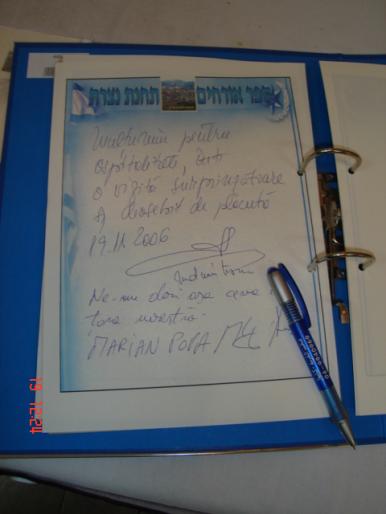 ספר אורחים תחנת נצרת
Mulțumim pentru
ospitalitate,
o vizită surprinzătoare
și deosebit de plăcută
19.11.2006
Ne-am dori așa ceva
țara noastră.
MARIAN POPA
19 12:24